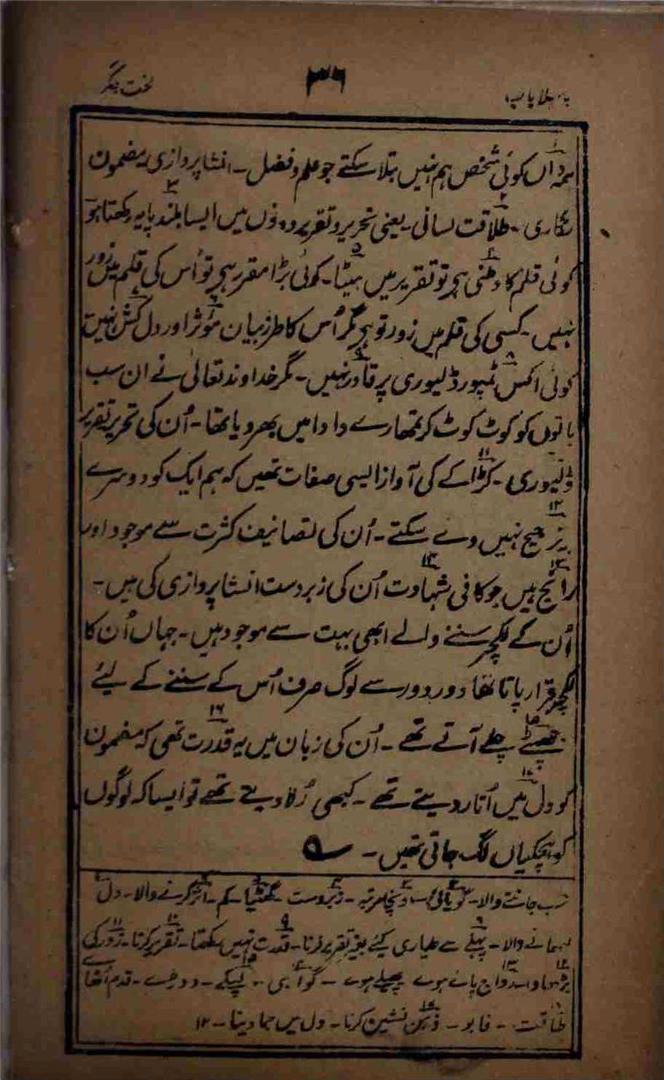 پہلا باب ۳۶ لخت جگر
ہمہ داں کوئی شخص ہم نہیں بتلا سکتے جو علم و فضل ۔ انشا پردازی ۔ مضمون
نگاری ۔ طلاقت لسانی ۔ یعنی تحریر و تقریر دونوں میں ایسا بلند پایہ رکھتا ہو
کوئی قلم کا دھنی ہے تو تقریر میں ہیٹا ۔ کوئی بڑا مقرر ہے تو اُس کی قلم میں زور
نہیں ۔ کسی کی قلم میں زور تو ہے مگر اُس کا طرز بیان مؤثر اور دل کش نہیں
کوئی اکس ٹمپورڈ لیوری پر قادر نہیں ۔ مگر خداوند تعالیٰ نے ان سب
باتوں کو کوٹ کوٹ کر تمھارے دادا میں بھر دیا تھا ۔ اُن کی تحریر تقریر
ڈلیوری ۔ کڑاکے کی آواز ایسی صفات تھیں کہ ہم ایک کو دوسرے
پر ترجیح نہیں دے سکتے ۔ اُن کی تصانیف کثرت سے موجود اور
رائج ہیں جو کافی شہادت اُن کی زبردست انشا پردازی کی ہیں ۔
اُن کے لکچر سننے والے ابھی بہت سے موجود ہیں ۔ جہاں اُن کا
لکچر قرار پاتا تھا دور دور سے لوگ صرف اُس کے سننے کے لیئے
جھپٹے چلے آتے تھے ۔ اُن کی زبان میں یہ قدرت تھی کہ مضمون
کو دل میں اُتار دیتے تھے ۔ کبھی رُلا دیتے تھے تو ایسا کہ لوگوں
کو ہچکیاں لگ جاتی تھیں ۔
سب جاننے والا ۔ گویائی ۔ اونچا مرتبہ ۔ زبردست ۔ گھٹیا ۔ کم ۔ اثر کرنے والا ۔ دل
لبھانے والا ۔ پہلے سے طیاری کئے بغیر تقریر کرنا ۔ قدرت نہیں رکھتا ۔ تقریر کرنا ۔ زور کی
بڑھاوا ۔ رواج پائے ہوے پھیلے ہوے ۔ گواہی ۔ لپکے ۔ دوڑے ۔ قدم اُٹھا
طاقت ۔ قابو ۔ ذہن نشین کرنا ۔ دل میں جما دینا ۔ ۱۲